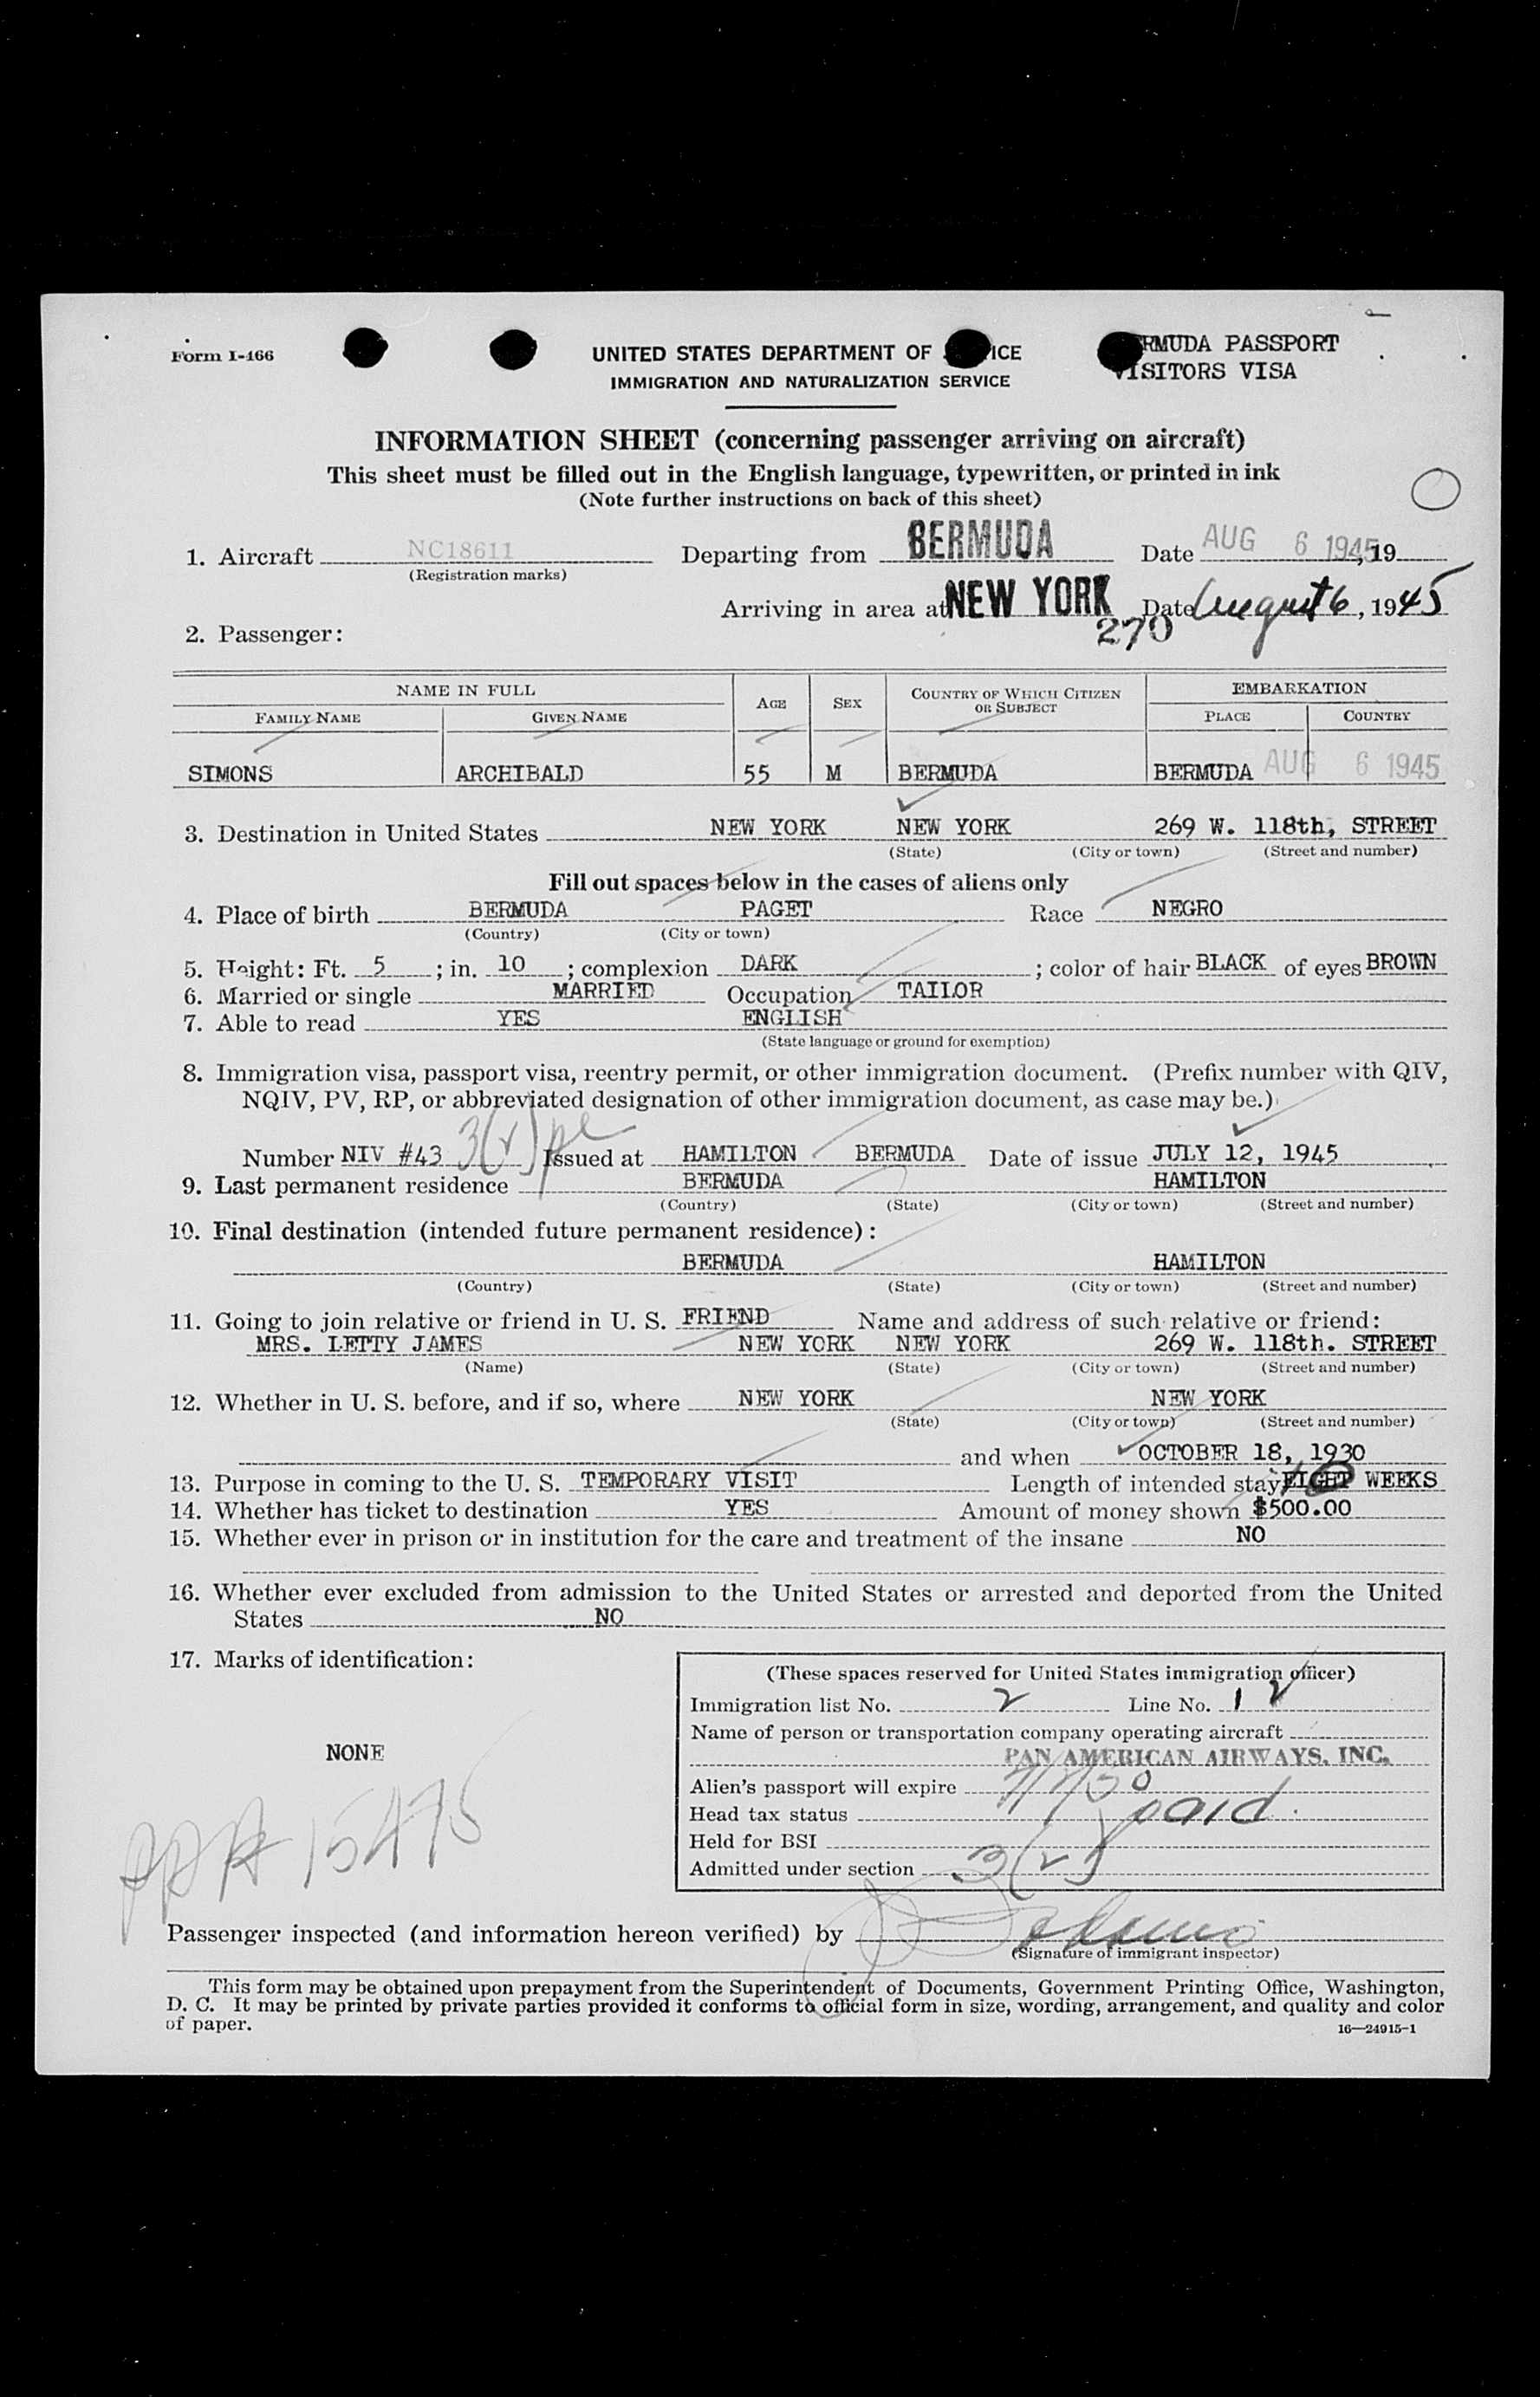 Form I-466
UNITED STATES DEPARTMENT OF ICE
IMMIGRATION AND NATURALIZATION SERVICE
RMUDA PASSPORT
VISITORS VISA
INFORMATION SHEET (concerning passenger arriving on aircraft)
This sheet must be filled out in the English language, typewritten, or printed in ink
(Note further instructions on back of this sheet)
1. Aircraft NC18611 Departing from BERMUDA Date AUG 6 1945, 19
(Registration marks)
Arriving in area at NEW YORK Date August 6, 1945
270
2. Passenger:
NAME IN FULL AGE SEX COUNTRY OF WHICH CITIZEN OR SUBJECT EMBARKATION
FAMILY NAME GIVEN NAME PLACE COUNTRY
SIMONS ARCHIBALD 55 M BERMUDA BERMUDA AUG 6 1945
3. Destination in United States NEW YORK NEW YORK 269 W. 118th, STREET
(State) (City or town) (Street and number)
Fill out spaces below in the cases of aliens only
4. Place of birth BERMUDA PAGET Race NEGRO
(Country) (City or town)
5. Height: Ft. 5; in. 10; complexion DARK; color of hair BLACK of eyes BROWN
6. Married or single MARRIED Occupation TAILOR
7. Able to read YES ENGLISH
(State language or ground for exemption)
8. Immigration visa, passport visa, reentry permit, or other immigration document. (Prefix number with QIV,
NQIV, PV, RP, or abbreviated designation of other immigration document, as case may be.)
Number NIV #43 3(2) Issued at HAMILTON BERMUDA Date of issue JULY 12, 1945
9. Last permanent residence BERMUDA HAMILTON
(Country) (State) (City or town) (Street and number)
10. Final destination (intended future permanent residence):
BERMUDA HAMILTON
(Country) (State) (City or town) (Street and number)
11. Going to join relative or friend in U. S. FRIEND Name and address of such relative or friend:
MRS. LETTY JAMES NEW YORK NEW YORK 269 W. 118th. STREET
(Name) (State) (City or town) (Street and number)
12. Whether in U. S. before, and if so, where NEW YORK NEW YORK
(State) (City or town) (Street and number)
and when OCTOBER 18, 1930
13. Purpose in coming to the U. S. TEMPORARY VISIT Length of intended stay EIGHT 10 WEEKS
14. Whether has ticket to destination YES Amount of money shown $500.00
15. Whether ever in prison or in institution for the care and treatment of the insane NO
16. Whether ever excluded from admission to the United States or arrested and deported from the United
States NO
17. Marks of identification:
NONE
(These spaces reserved for United States immigration officer)
Immigration list No. 2 Line No. 12
Name of person or transportation company operating aircraft
PAN AMERICAN AIRWAYS, INC.
Alien's passport will expire 7/7/50
Head tax status paid
Held for BSI
Admitted under section 3(2)
15475
Passenger inspected (and information hereon verified) by
(Signature of immigrant inspector)
This form may be obtained upon prepayment from the Superintendent of Documents, Government Printing Office, Washington,
D. C. It may be printed by private parties provided it conforms to official form in size, wording, arrangement, and quality and color
of paper.
16—24915-1